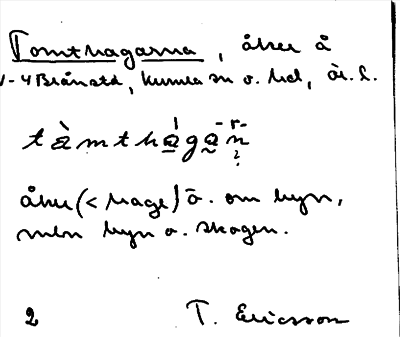 Tomthagarna, åker å
1-4 Brånsta, Kumla sn o. hd, Ör. l.
tàmthágạ̄n
åker (< hage) ö. om byn,
mln byn o. skogen.
2 T. Ericsson